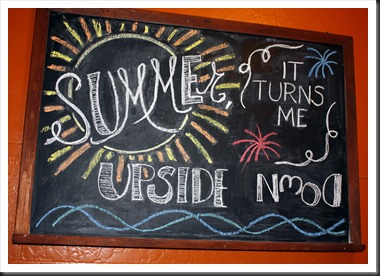 SUMMER,
IT
TURNS
ME
UPSIDE DOWN